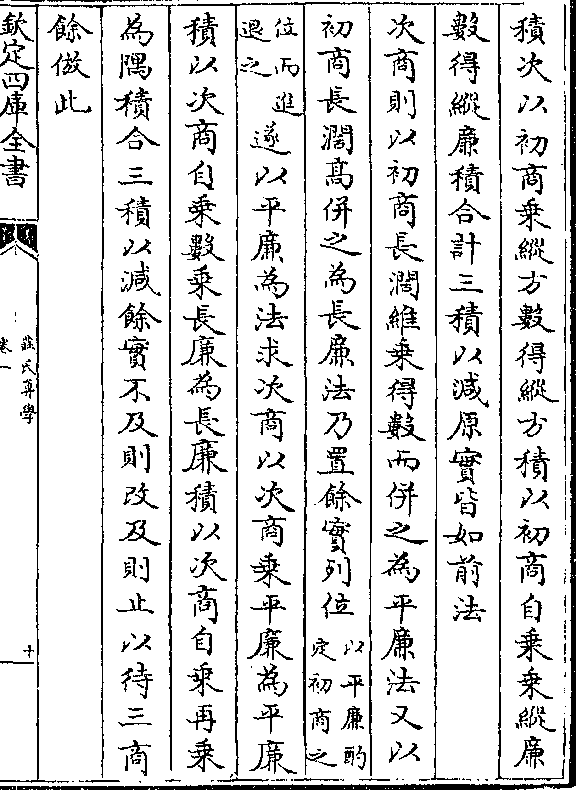 積次以初商乘縱方數得縱方積以初商自乘乘縱廉
數得縱廉積合計三積以減原實皆如前法
次商則以初商長濶維乘得數而併之為平廉法又以
初商長濶髙併之為長廉法乃置餘實列位以平廉酌定初商之
位而進退之遂以平廉為法求次商以次商乘平廉為平廉
積以次商自乘數乘長廉為長廉積以次商自乘再乘
為隅積合三積以減餘實不及則改及則止以待三商
餘倣此
欽定四庫全書
莊氏算學
卷一
十